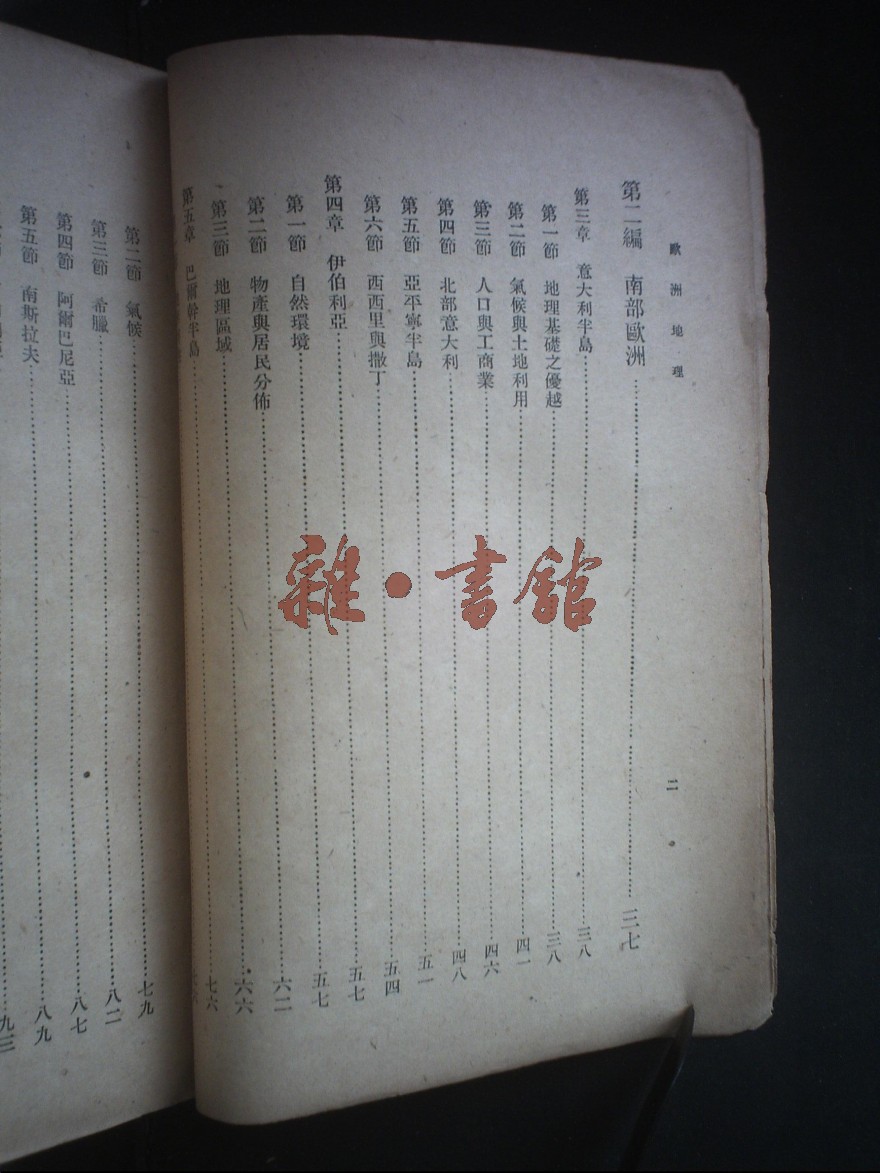 歐洲地理 二
第二編 南部歐洲 三七
第三章 意大利半島 三八
第一節 地理基礎之優越 三八
第二節 氣候與土地利用 四一
第三節 人口與工商業 四六
第四節 北部意大利 四八
第五節 亞平寧半島 五一
第六節 西西里與撒丁 五四
第四章 伊伯利亞 五七
第一節 自然環境 五七
第二節 物產與居民分佈 六二
第三節 地理區域 六六
第五章 巴爾幹半島 七六
第二節 氣候 七九
第三節 希臘 八二
第四節 阿爾巴尼亞 八七
第五節 南斯拉夫 八九
九三
雜·書館